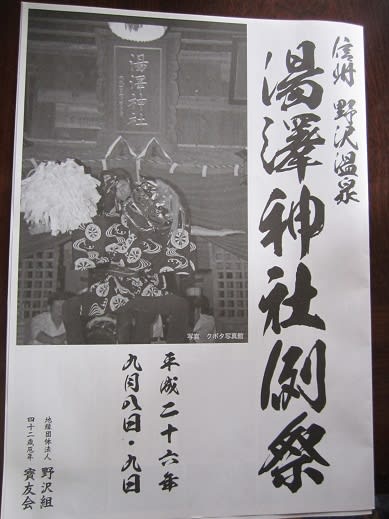 信州 野沢温泉
湯澤神社例祭
湯澤神社
写真 クボタ写真館
平成二十六年
九月八日・九日
地縁団体法人 野沢組
四十二歳厄年 賓友会